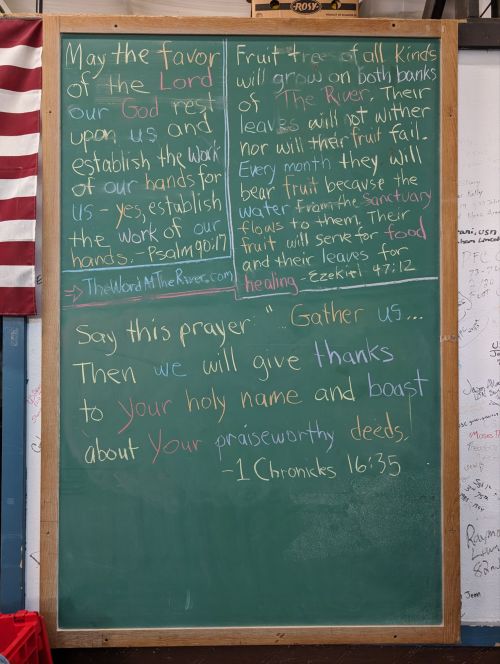 ROSY
May the favor
of the Lord
our God rest
upon us and
establish the work
of our hands for
us - yes, establish
the work of our
hands. - Psalm 90:17
→ TheWordAtTheRiver.com
Fruit tree of all kinds
will grow on both banks
of The River. Their
leaves will not wither
nor will their fruit fail.
Every month they will
bear fruit because the
water from the Sanctuary
flows to them. Their
fruit will serve for food
and their leaves for
healing. - Ezekiel 47:12
Say this prayer: "...Gather us...
Then we will give thanks
to your holy name and boast
about your praiseworthy deeds!
-1 Chronicles 16:35